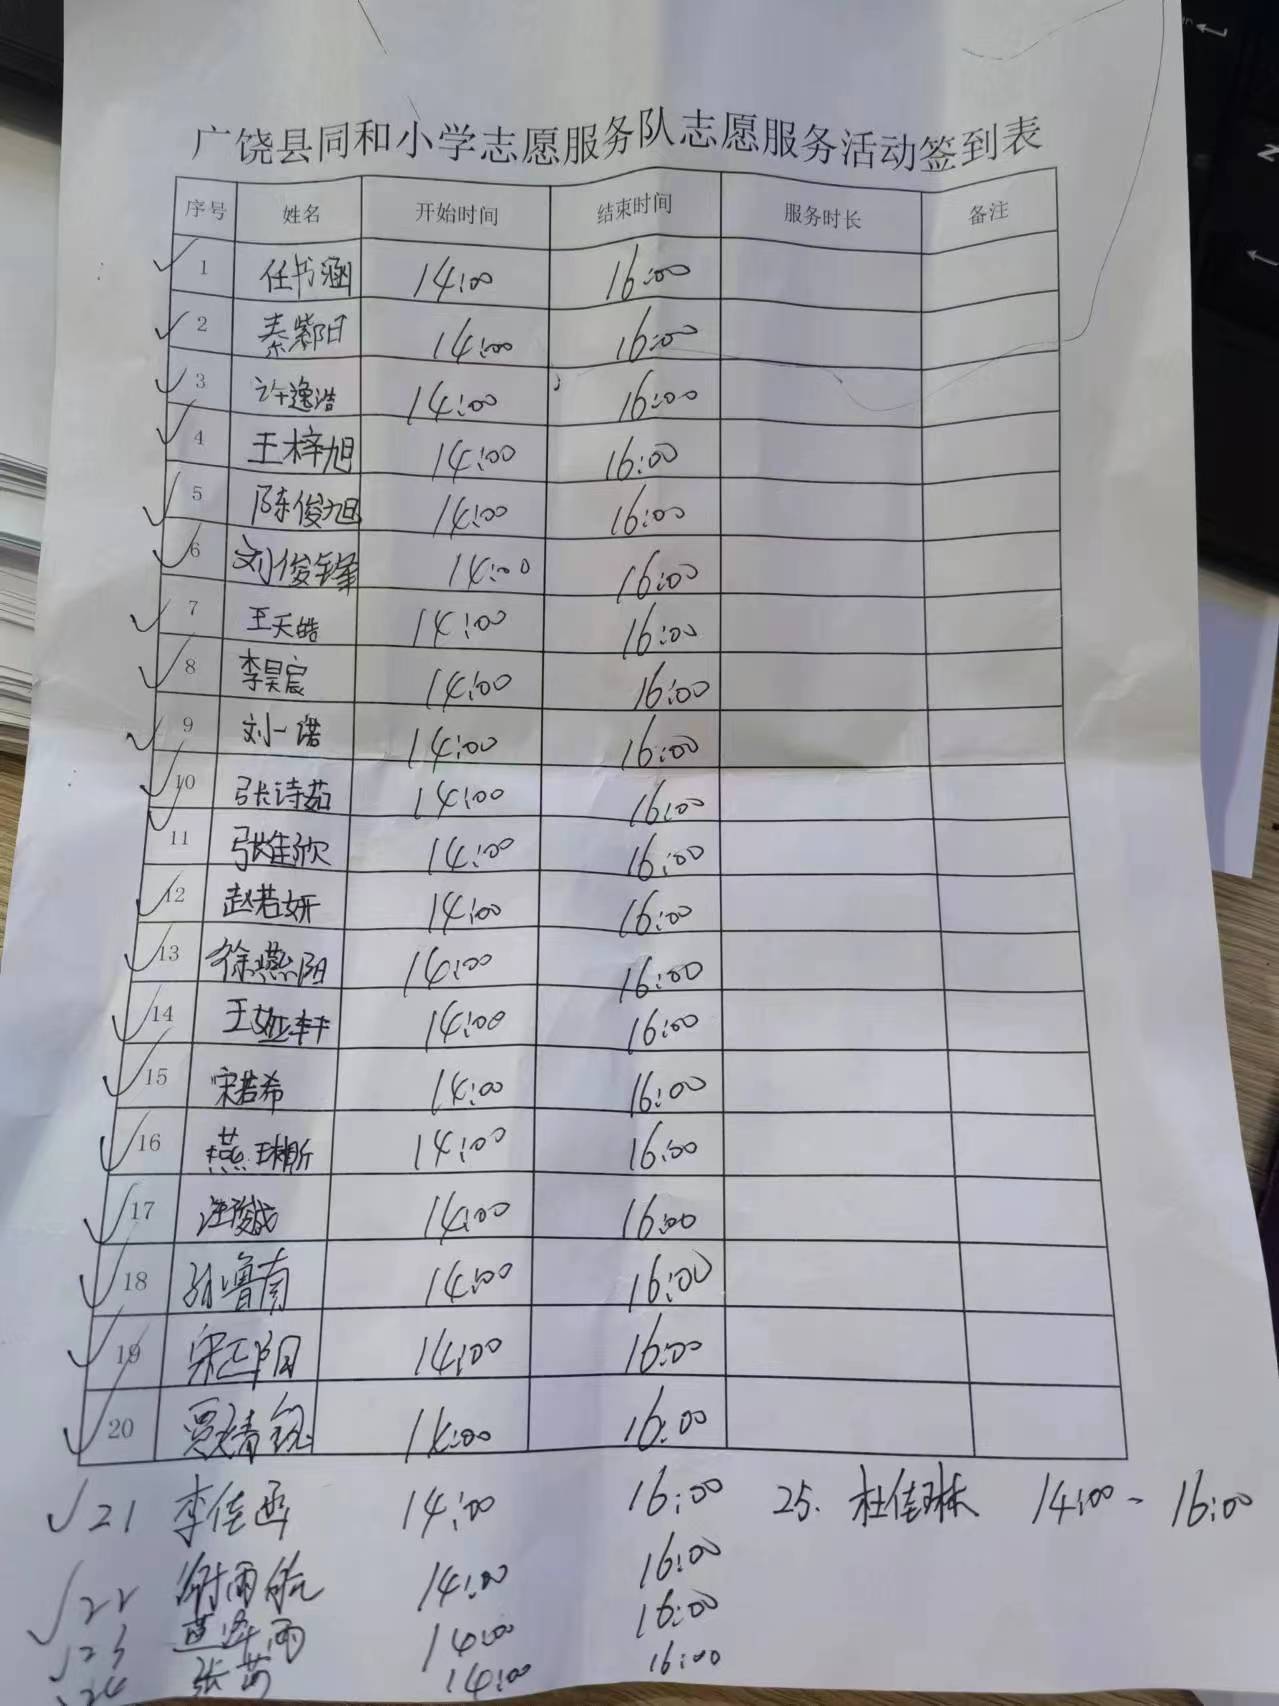 广饶县同和小学志愿服务队志愿服务活动签到表
序号 姓名 开始时间 结束时间 服务时长 备注
1 任书涵 14:00 16:00
2 秦紫阳 14:00 16:00
3 许逸浩 14:00 16:00
4 王梓旭 14:00 16:00
5 陈俊旭 14:00 16:00
6 刘俊锋 14:00 16:00
7 王天皓 14:00 16:00
8 李昊宸 14:00 16:00
9 刘一诺 14:00 16:00
10 张诗茹 14:00 16:00
11 张佳欣 14:00 16:00
12 赵若妍 14:00 16:00
13 徐燕阳 14:00 16:00
14 王娅轩 14:00 16:00
15 宋若希 14:00 16:00
16 燕琳昕 14:00 16:00
17 14:00 16:00
18 孙鲁南 14:00 16:00
19 宋正阳 14:00 16:00
20 贾靖锐 14:00 16:00
21 李佳函 14:00 16:00 25. 杜佳琳 14:00 - 16:00
22 14:00 16:00
23 14:00 16:00
24 张茜 14:00 16:00